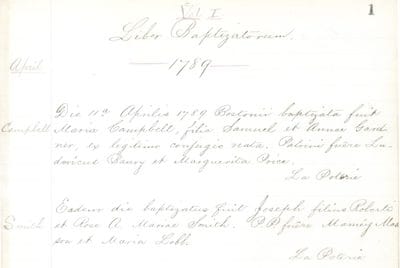 Vol I
1
Liber Baptizatorum
April
1789
Die 11a Aprilis 1789 Bostonii baptizata fuit
Campbell Maria Campbell, filia Samuel et Annae Gard
ner, ex legitimo conjugio nata. Patrini fuêre Lu
dovicus Baury et Marguerita Price.
La Poterie
Eadem die baptizatus fuit Joseph filius Roberti
Smith et Rose A. Manae Smith. PP fuêre
son et Maria Lobb.
La Poterie